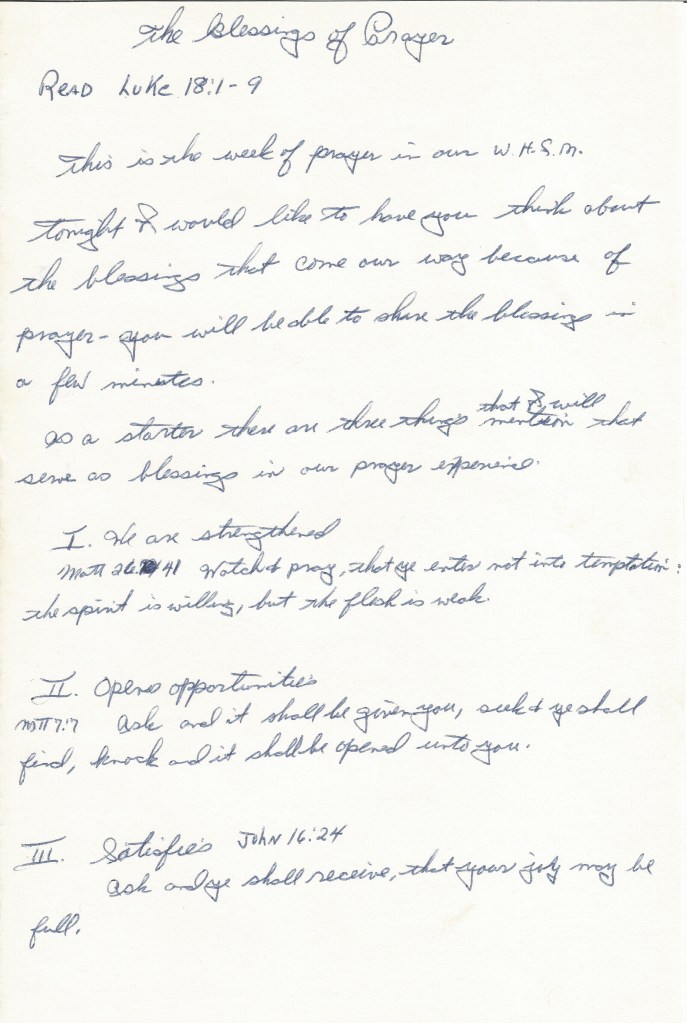 The Blessings of Prayer
READ LUKE 18:1-9
This is the week of prayer in our W.H.S.M.
tonight I would like to have you think about
the blessings that come our way because of
prayer - you will be able to share the blessings in
a few minutes.
that I will
as a starter there are three things mention that
serve as blessings in our prayer experience.
I. We are strengthened
Matt 26:41 Watch & pray, that ye enter not into temptation:
the spirit is willing, but the flesh is weak.
II. Opens opportunities
Matt 7:7 Ask and it shall be given you, seek & ye shall
find, knock and it shall be opened unto you.
III. Satisfies JOHN 16:24
Ask and ye shall receive, that your joy may be
full.